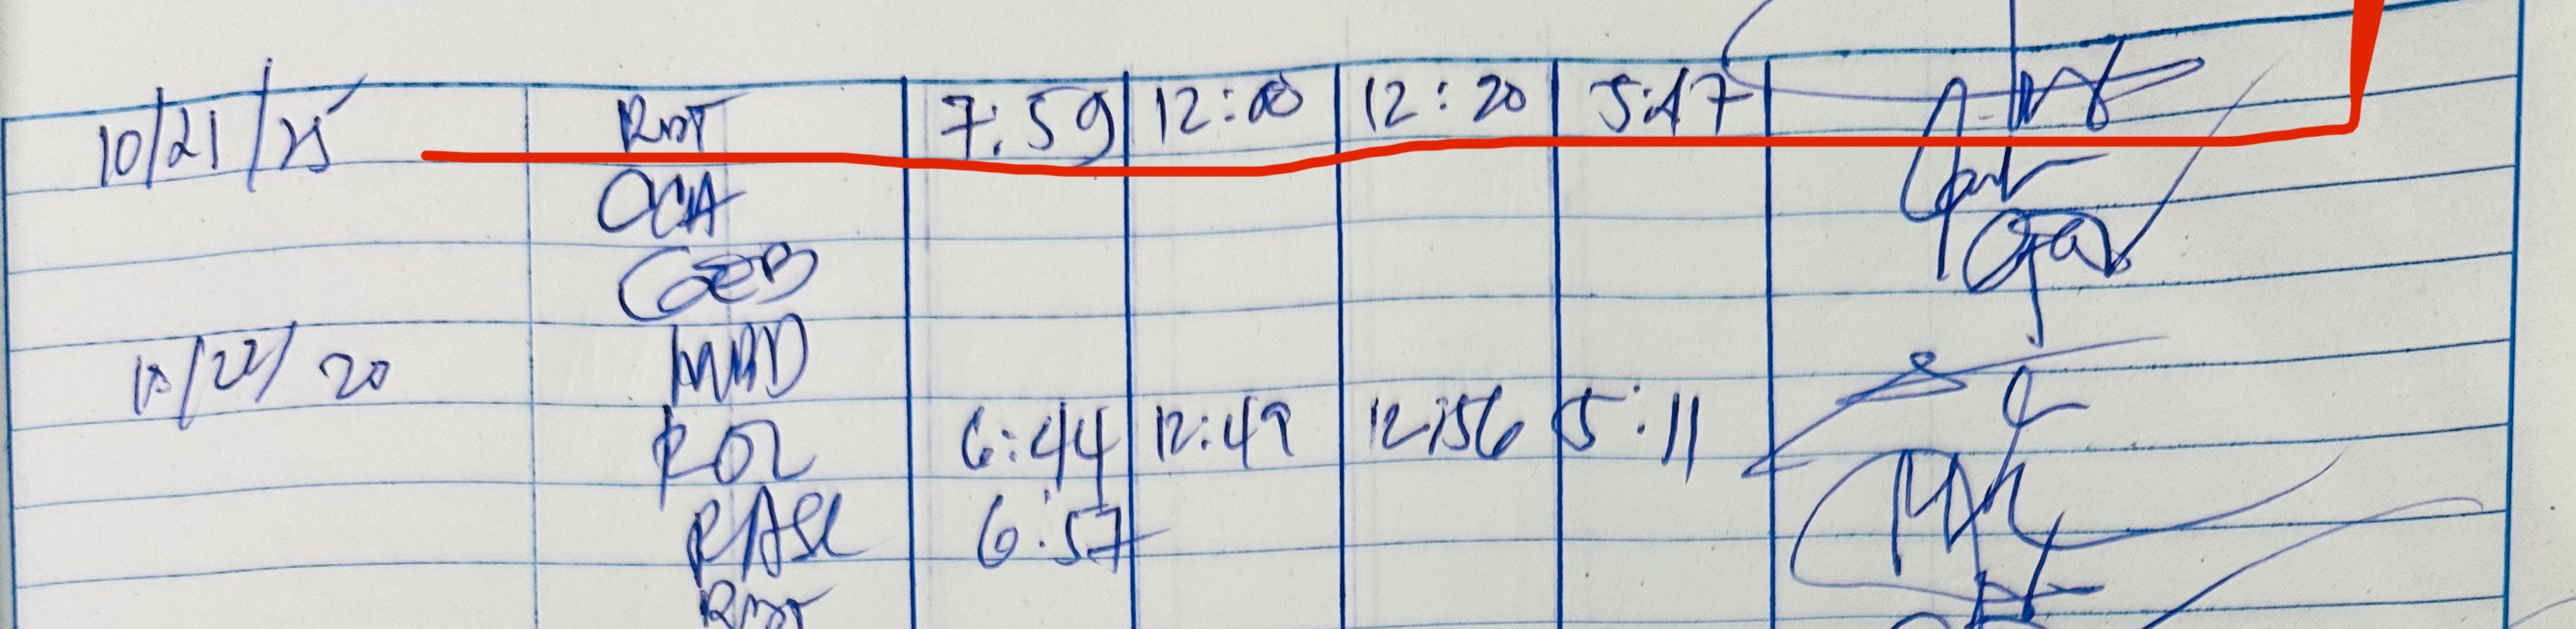 10/21/25 RDT 7:59 12:00 12:20 5:47
OCA
GEB
10/22/20 MBD
ROL 6:44 12:49 12:56 5:11
RASC 6:57
RDT